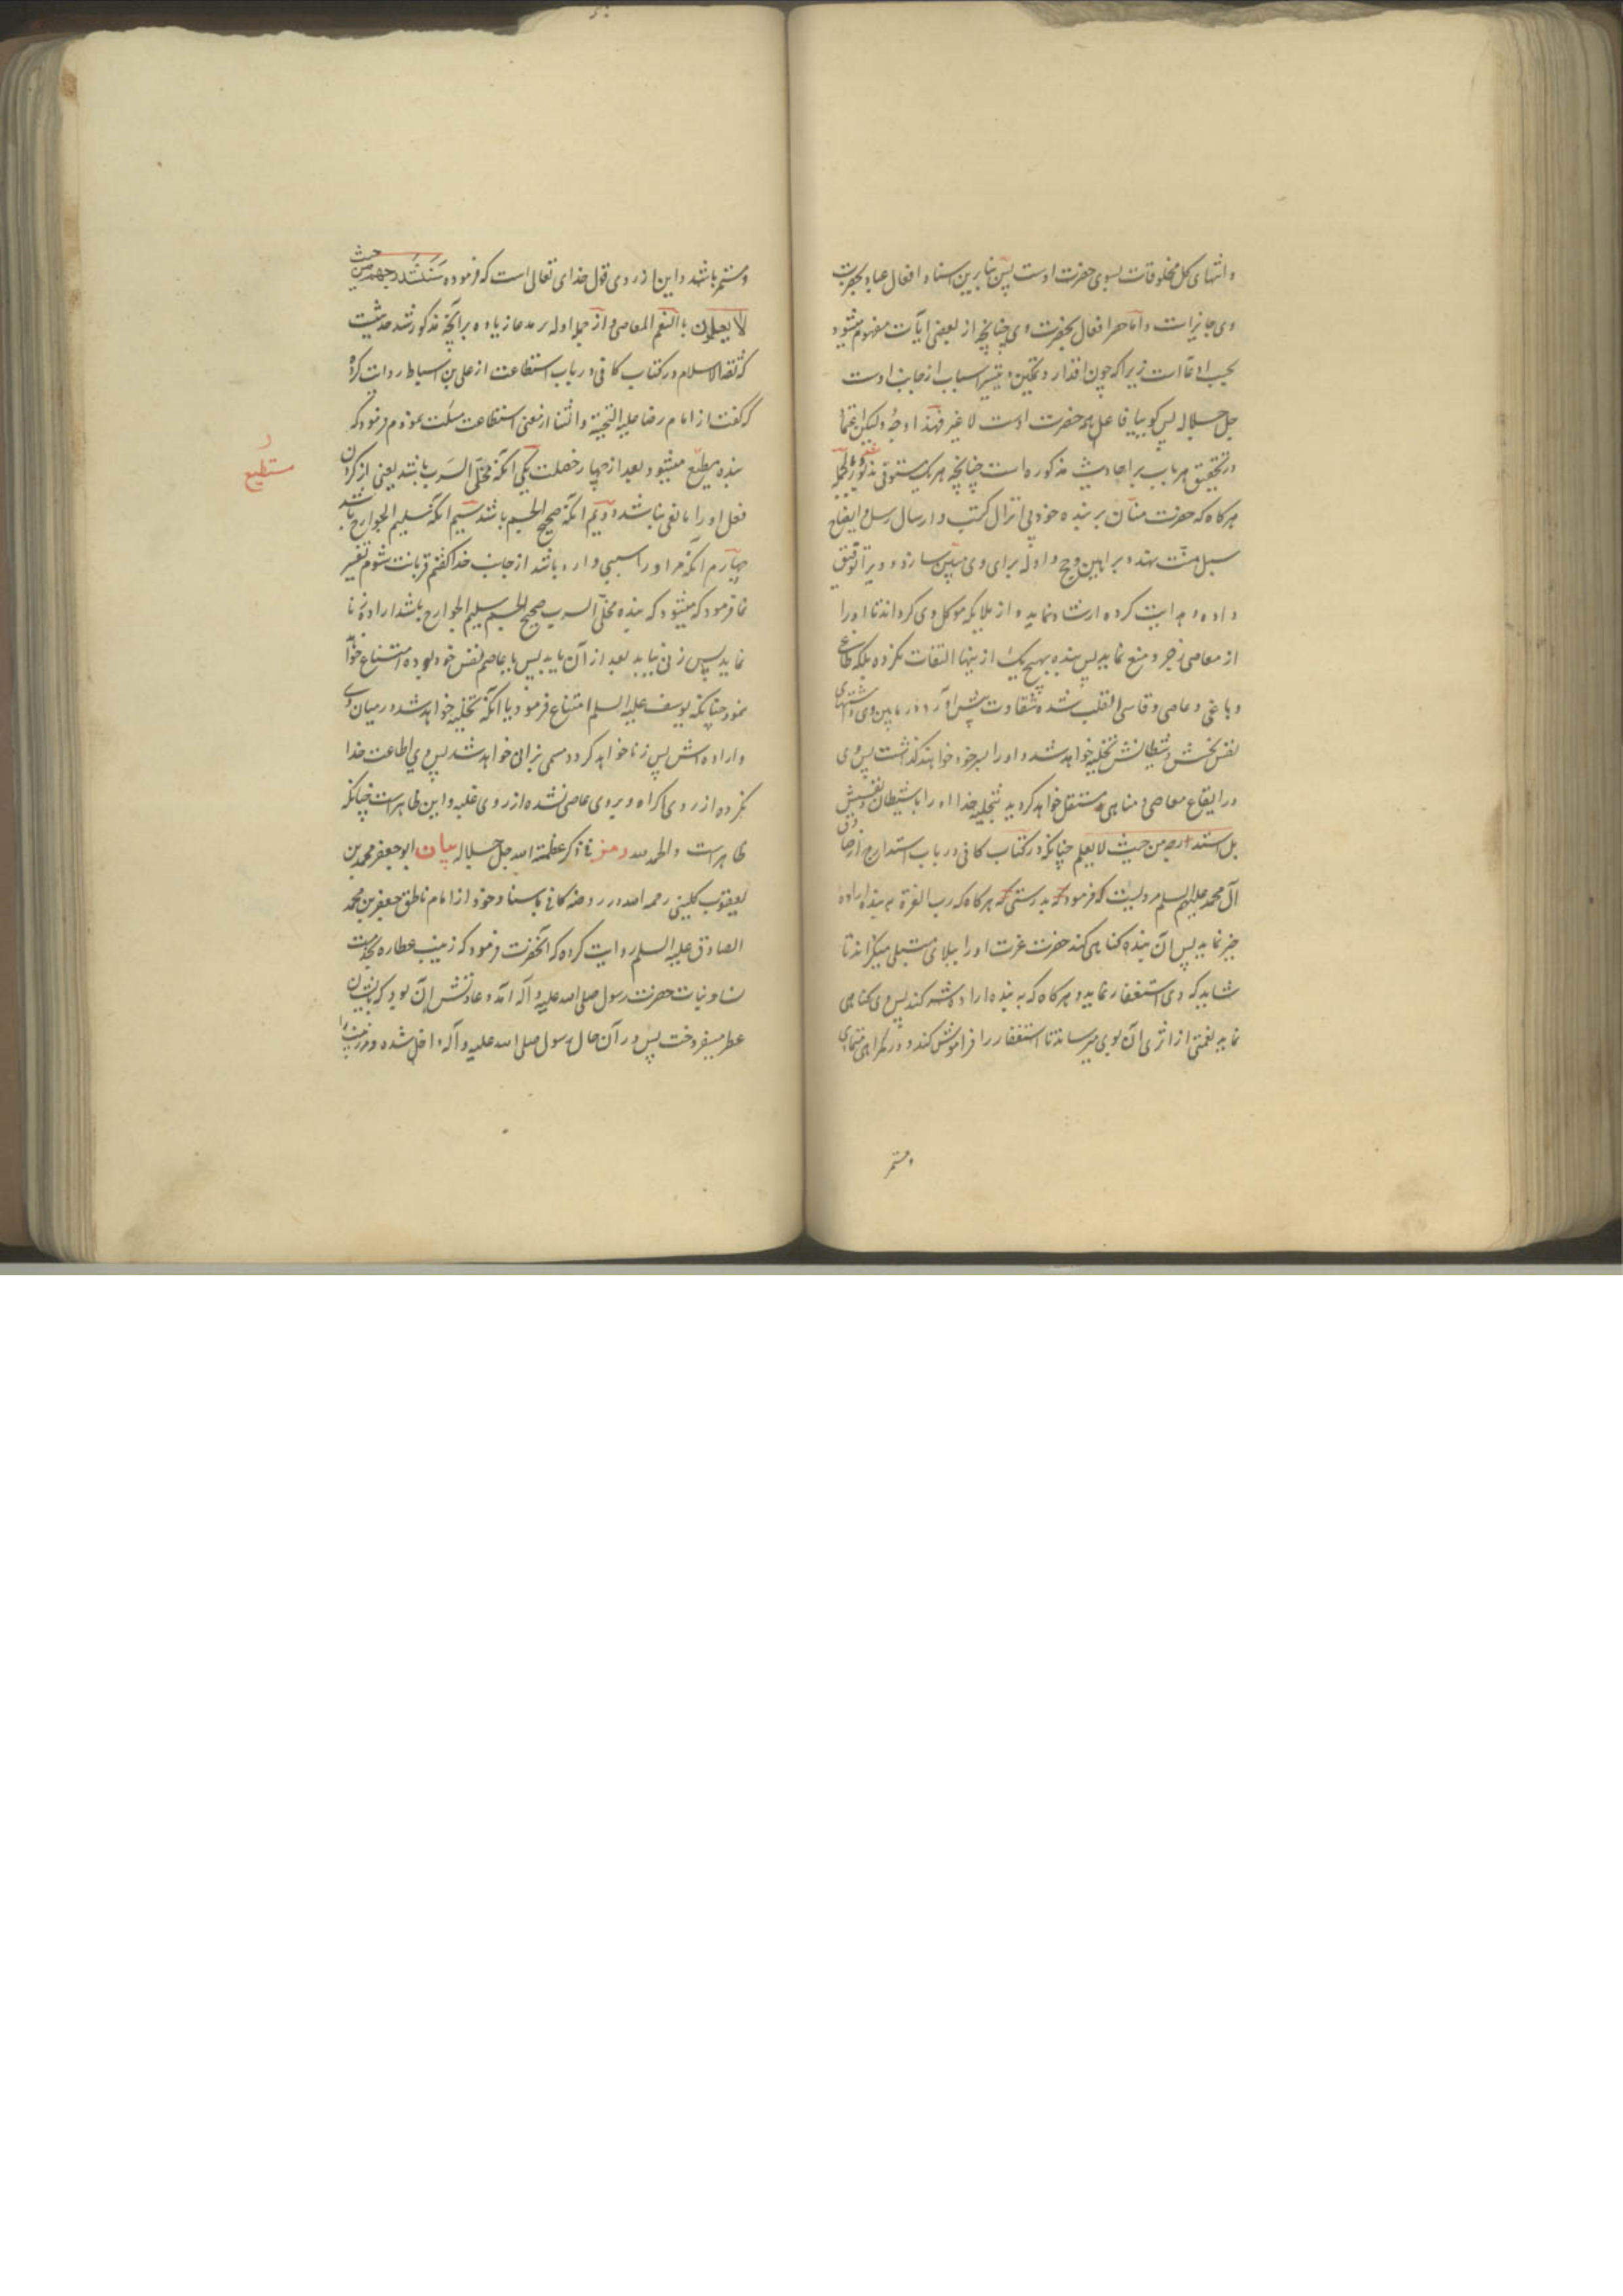 و انتهای کل مخلوقات بسوی حضرت اوست پس بنا برین اسناد افعال عباد بحضرت
وی جایز است و اما حصر افعال بحضرت وی چنانچه از بعضی ایات مفهوم میشود
بحسب ادعا است زیرا که چون اقدار و تمکین و تیسیر اسباب از جانب اوست
جل جلاله پس کوییا فاعل همه حضرت اوست لا غیر فهذا اوجهٌ ولیکن اعتماد
در تحقیق هر باب بر احادیث مذکوره است چنانچه هر یک مستوفی مذکور بالجمله
هرکاه که حضرت منان بر بنده خود پی انزال کتب و ارسال رسل و ایضاح
سبل منت نهد و براهین و حجج و ادله برای وی مبین سازد و ویرا توفیق
داده و هدایت کرده ارشاد نماید و از ملایکه موکل وی کرداند تا او را
از معاصی زجر و منع نماید پس بنده بهیچ یک از ینها التفات نکرده بلکه طاغی
و باغی و عاصی و قاسی القلب شده شقاوت پیش اورد در مابین وی و اشتهای
نفس نحسش و شیطانش تخلیه خواهد شد و او را بسرخود خواهند کذاشت پس وی
در ایقاع معاصی و مناهی مستقل خواهد کردید بتخلیه خدا او را با شیطان و نفسش
بل استدارجه من حیث لا یعلم چنانکه در کتاب کافی در باب استدراج از صادق
آل محمد علیهم السلم مرویست که فرمود که بدرستی که هرکاه که رب العزة به بنده اراده
خیر نماید پس ان بنده کناهی کند حضرت عزت او را ببلای مبتلی میکرداند تا
شاید که وی استغفار نماید و هرکاه که به بنده اراده شر کند پس وی کناهی
نماید نعمتی از اثر ی آن بوی میرساند تا استغفار را فراموش کند و در کمراهی متمادی
و مستمر
و مستمر باشد و این از روی قول خدای تعالی است که فرموده سنستدرجهم من حیث
لا یعلمون بالنعم المعاصی و از جمله ادله بر مدعا زیاده بر انچه مذکور شد حدیثیست
که ثقة الاسلام در کتاب کافی در باب استطاعت از علی بن اسباط روایت کرده
که کفت از امام رضا علیه التحیة و الثنا از معنی استطاعت سئلت نمودم فرمود که
بنده مطیع میشود بعد از چهار خصلت یکی انکه مخلی السرب باشد یعنی از کردن
فعل او را مانعی نباشد دویم انکه صحیح الجسم باشد سیم انکه سلیم الجوارح باشد
چهارم انکه مر او را سببی وارد باشد از جانب خدا کفتم قربانت شوم تفسیر
نما فرمود که میشود که بنده مخلی السرب صحیح الجسم سلیم الجوارح باشد اراده زنا
نماید پس زنی نیابد بعد از آن یابد پس یا عاصم نفس خود بوده امتناع خواهد
نمود چنانکه یوسف علیه السلم امتناع فرمود یا انکه تخلیه خواهد شد در میان وی
و اراده اش پس زنا خواهد کرد و مسمی بزانی خواهد شد پس وی اطاعت خدا
نکرده از روی اکراه و بر وی عاصی نشده از روی غلبه و این ظاهر است چنانکه
ظاهر است والحمد لله رمز فی ذکر عظمة الله جل جلاله بیان ابو جعفر محمد بن
یعقوب کلینی رحمه الله در روضه کافی باسناد خود از امام ناطق جعفر بن محمد
الصادق علیه السلم روایت کرده که آنحضرت فرمود که زینب عطاره بخدمت
نسا و بنات حضرت رسول صلی الله علیه و آله آمد و عادتش آن بود که بایشان
عطر میفروخت پس در آن حال رسول صلی الله علیه و آله داخل شده و زینب را
مستطیع